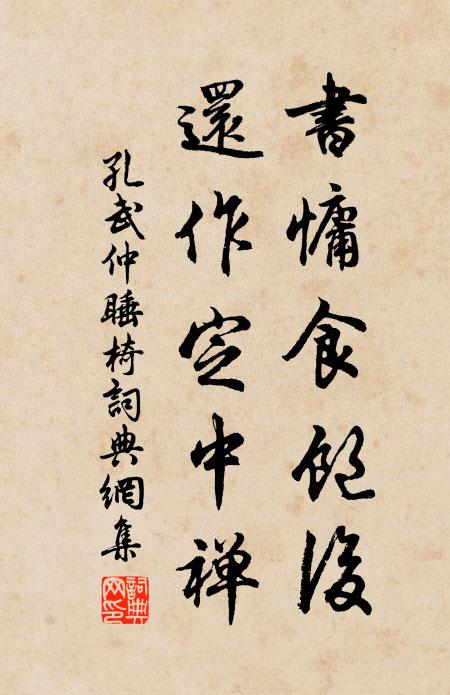 書慵食飽後
還作定中禅
孔武仲睡椅詞典網集
詞典网印